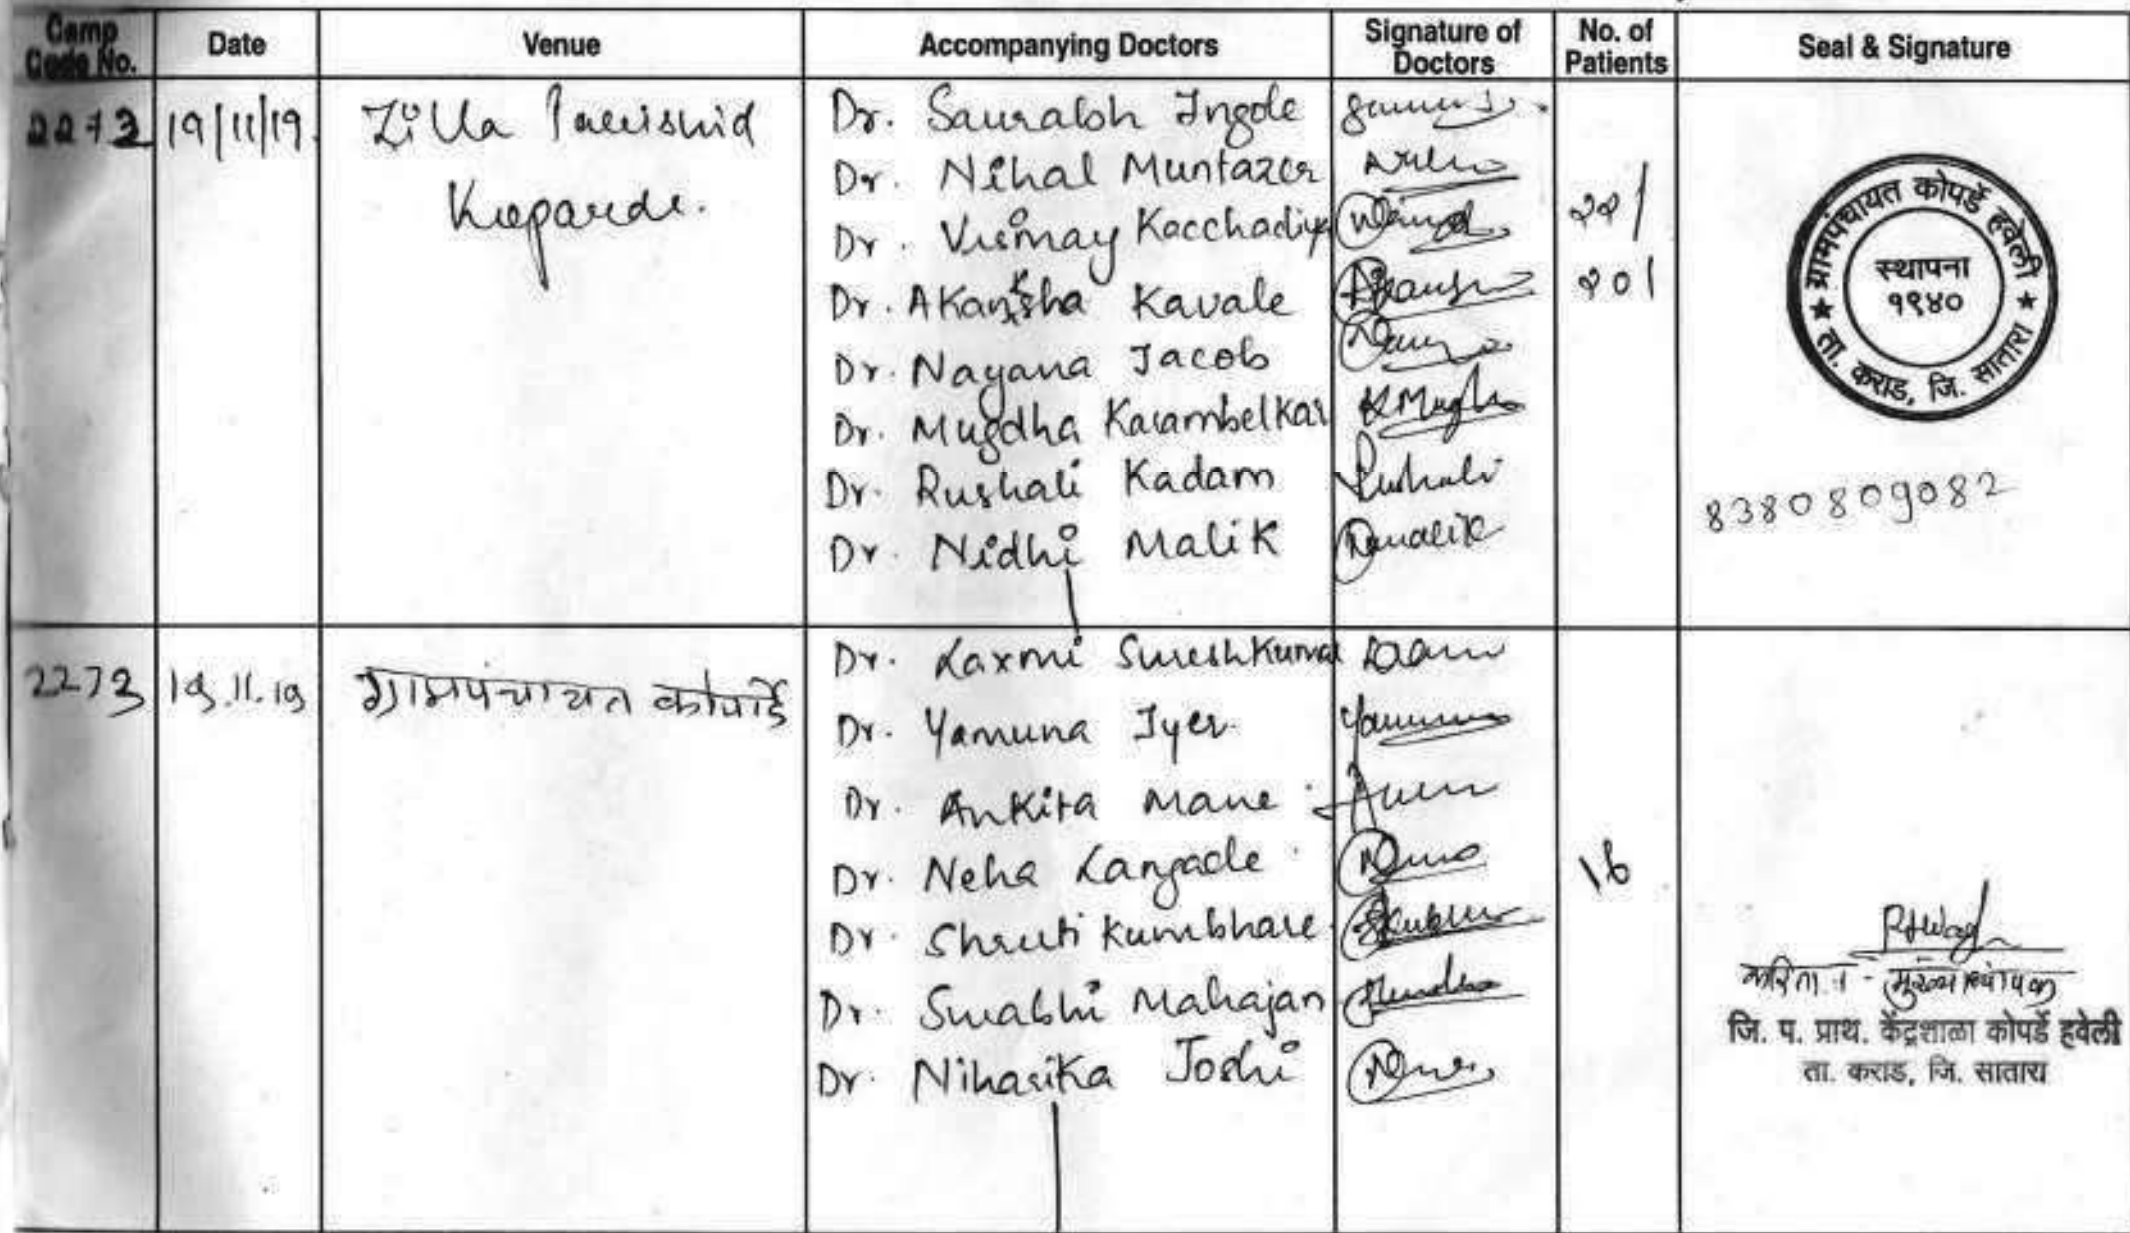 Camp Code No. Date Venue Accompanying Doctors Signature of Doctors No. of Patients Seal & Signature
2272 19/11/19 Zilla Parishid
Koparde.
Dr. Saurabh Ingole
Dr. Nihal Muntazer
Dr. Vismay Kacchadiya
Dr. Akanksha Kavale
Dr. Nayana Jacob
Dr. Mugdha Karambelkar K Mugdha
Dr. Rushali Kadam Rushali
Dr. Nidhi Malik Nmalik
२०१
★ ग्रामपंचायत कोपर्डे हवेली ★
ता. कराड, जि. सातारा
स्थापना
१९४०
8380809082
2273 19.11.19 ग्रामपंचायत कोपर्डे
Dr. Laxmi Sureshkumar
Dr. Yamuna Iyer
Dr. Ankita Mane
Dr. Neha Langade
Dr. Shruti Kumbhare
Dr. Surabhi Mahajan
Dr. Niharika Joshi
16
करिता - मुख्याध्यापक
जि. प. प्राथ. केंद्रशाळा कोपर्डे हवेली
ता. कराड, जि. सातारा